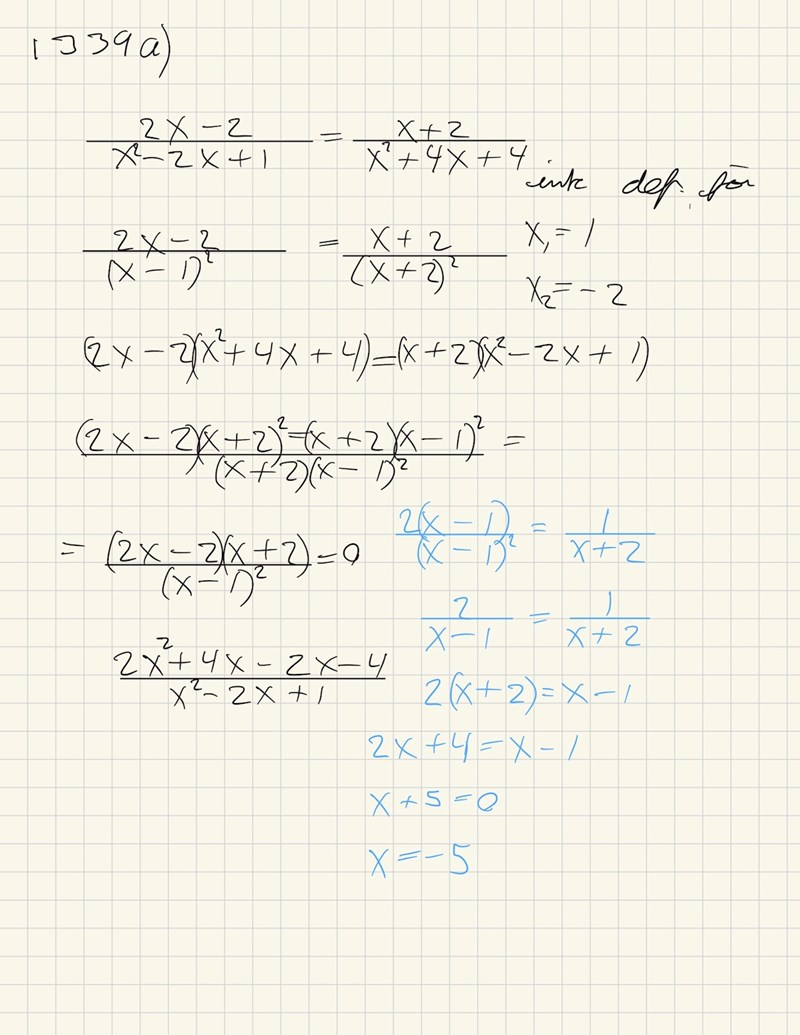 1339a)
(2x-2)/(x²-2x+1) = (x+2)/(x²+4x+4)
inte def. för
(2x-2)/(x-1)² = (x+2)/(x+2)²
x₁=1
x₂=-2
(2x-2)(x²+4x+4)=(x+2)(x²-2x+1)
((2x-2)(x+2)²=(x+2)(x-1)²)/((x+2)(x-1)²) =
= ((2x-2)(x+2))/(x-1)² = 0
(2x²+4x-2x-4)/(x²-2x+1)
2(x-1)/(x-1)² = 1/(x+2)
2/(x-1) = 1/(x+2)
2(x+2)=x-1
2x+4=x-1
x+5=0
x=-5